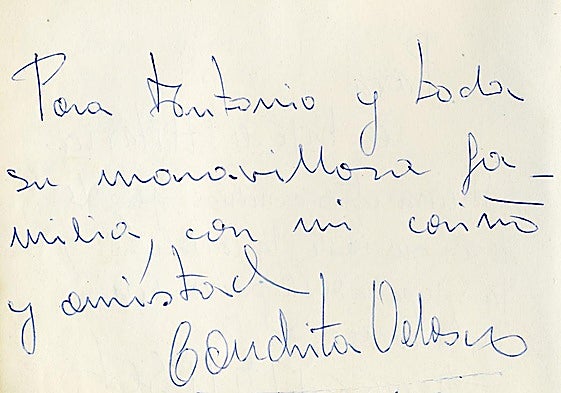 Para Antonio y toda
su maravillosa fa-
milia, con mi cariño
y amistad.
Conchita Velasco